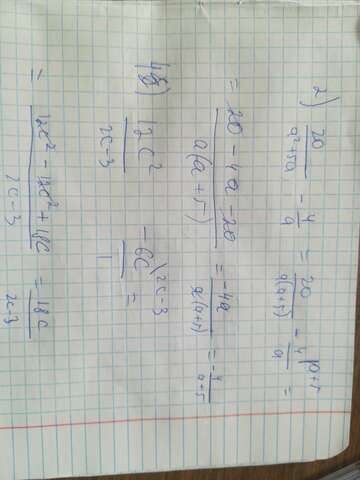 2) 20/(a²+5a) - 4/a = 20/(a(a+5)) - 4/a \a+5 =
= (20 - 4a - 20)/(a(a+5)) = -4a/(a(a+5)) = -4/(a+5)
4) 12c²/(2c-3) - 6c/1 \2c-3 =
= (12c² - 12c² + 18c)/(2c-3) = 18c/(2c-3)